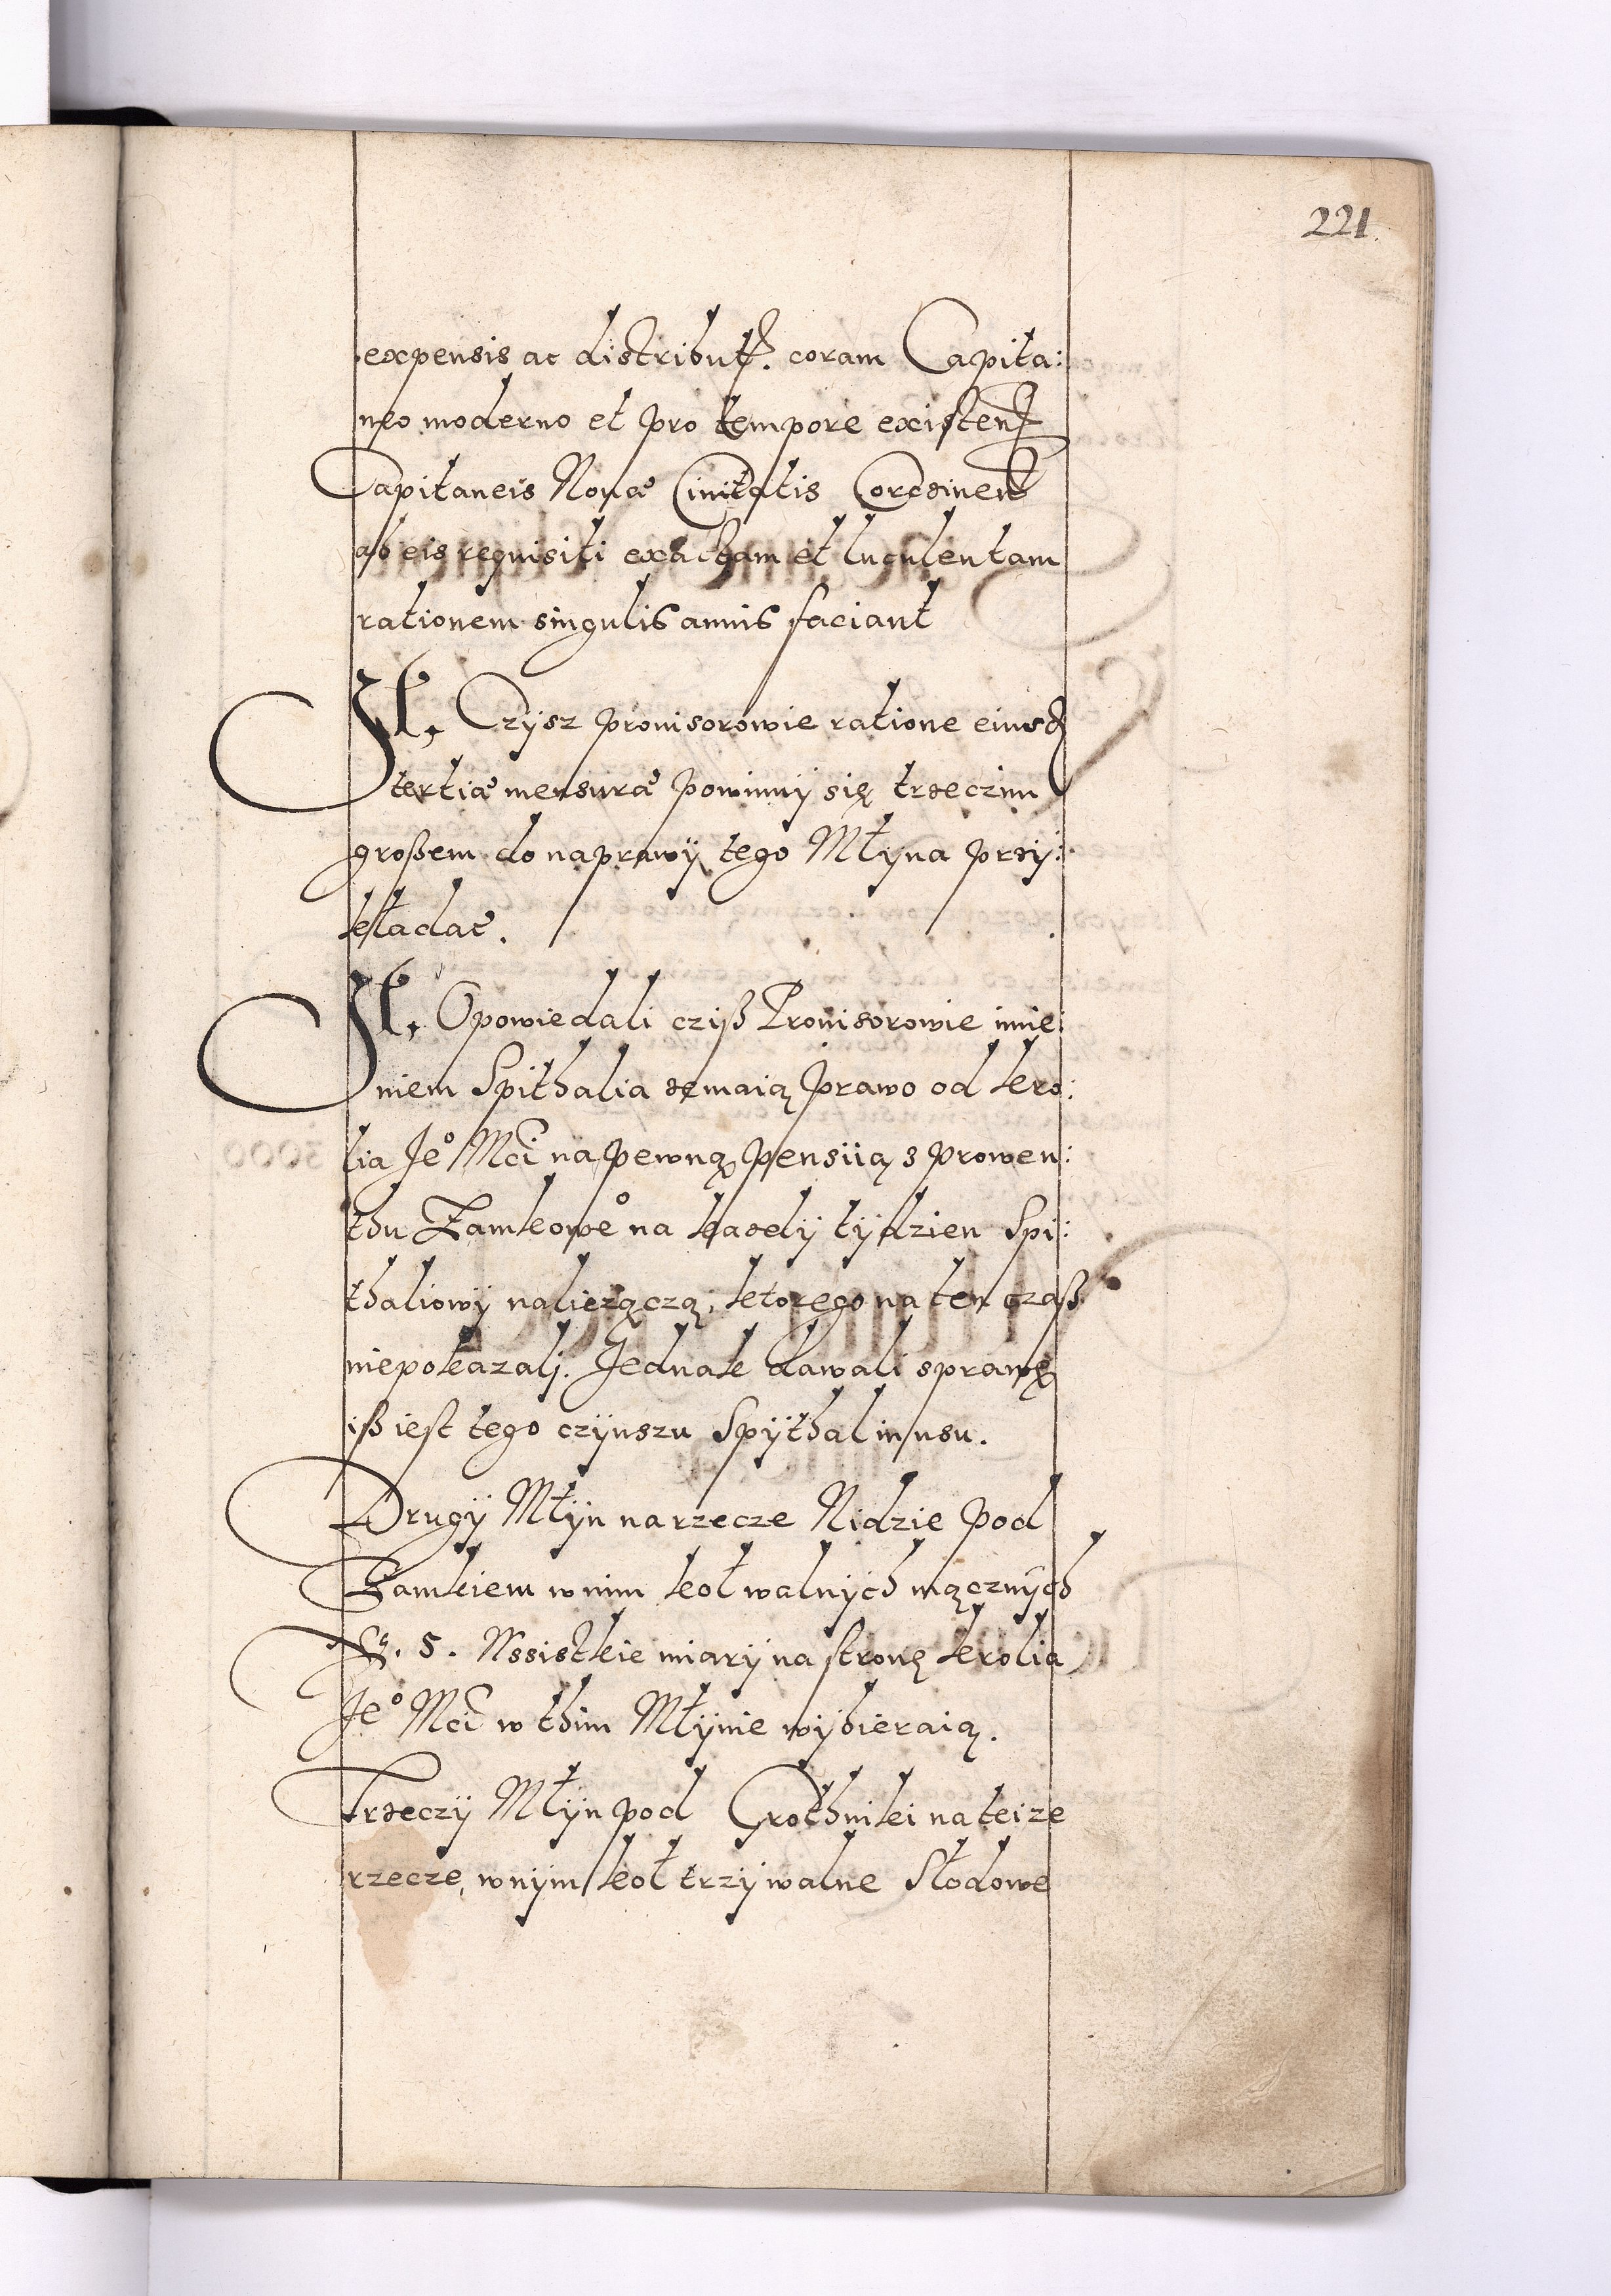 221.
expensis ac distribut. coram Capita:
neo moderno et pro tempore existen
Capitaneis Novæ Civitatis Corczinen
ab eis requisiti exactam et luculentam
rationem singulis annis faciant
It, Czÿsz provisorowie ratione eiusd
tertiæ mensuræ powinnÿ się trzeczim
großem do naprawÿ tego Młÿna przÿ:
kładać.
It, Opowiedali cziß Provisorowie imie:
niem Spithalia że maią prawo od kro:
lia Jeº Mći na pewną pensiią s prowen:
thu Zamkoweº na każdÿ tÿdzien Spi:
thaliowÿ należączą, ktorego na ten czaß
niepokazali. Jednak dawali sprawę
iß iest tego czÿnszu Spÿthal in usu.
Drugÿ Młÿn na rzecze Nidzie pod
Zamkiem w nim koł walnÿch mącznÿch
Nº. 5. Wssistkie miarÿ na stronę krolia
Jeº Mći w thim Młÿnie wÿbieraią.
Trzeczÿ Młÿn pod Grothniki na teize
rzecze, w nÿm koł trzÿ walne Słodowe